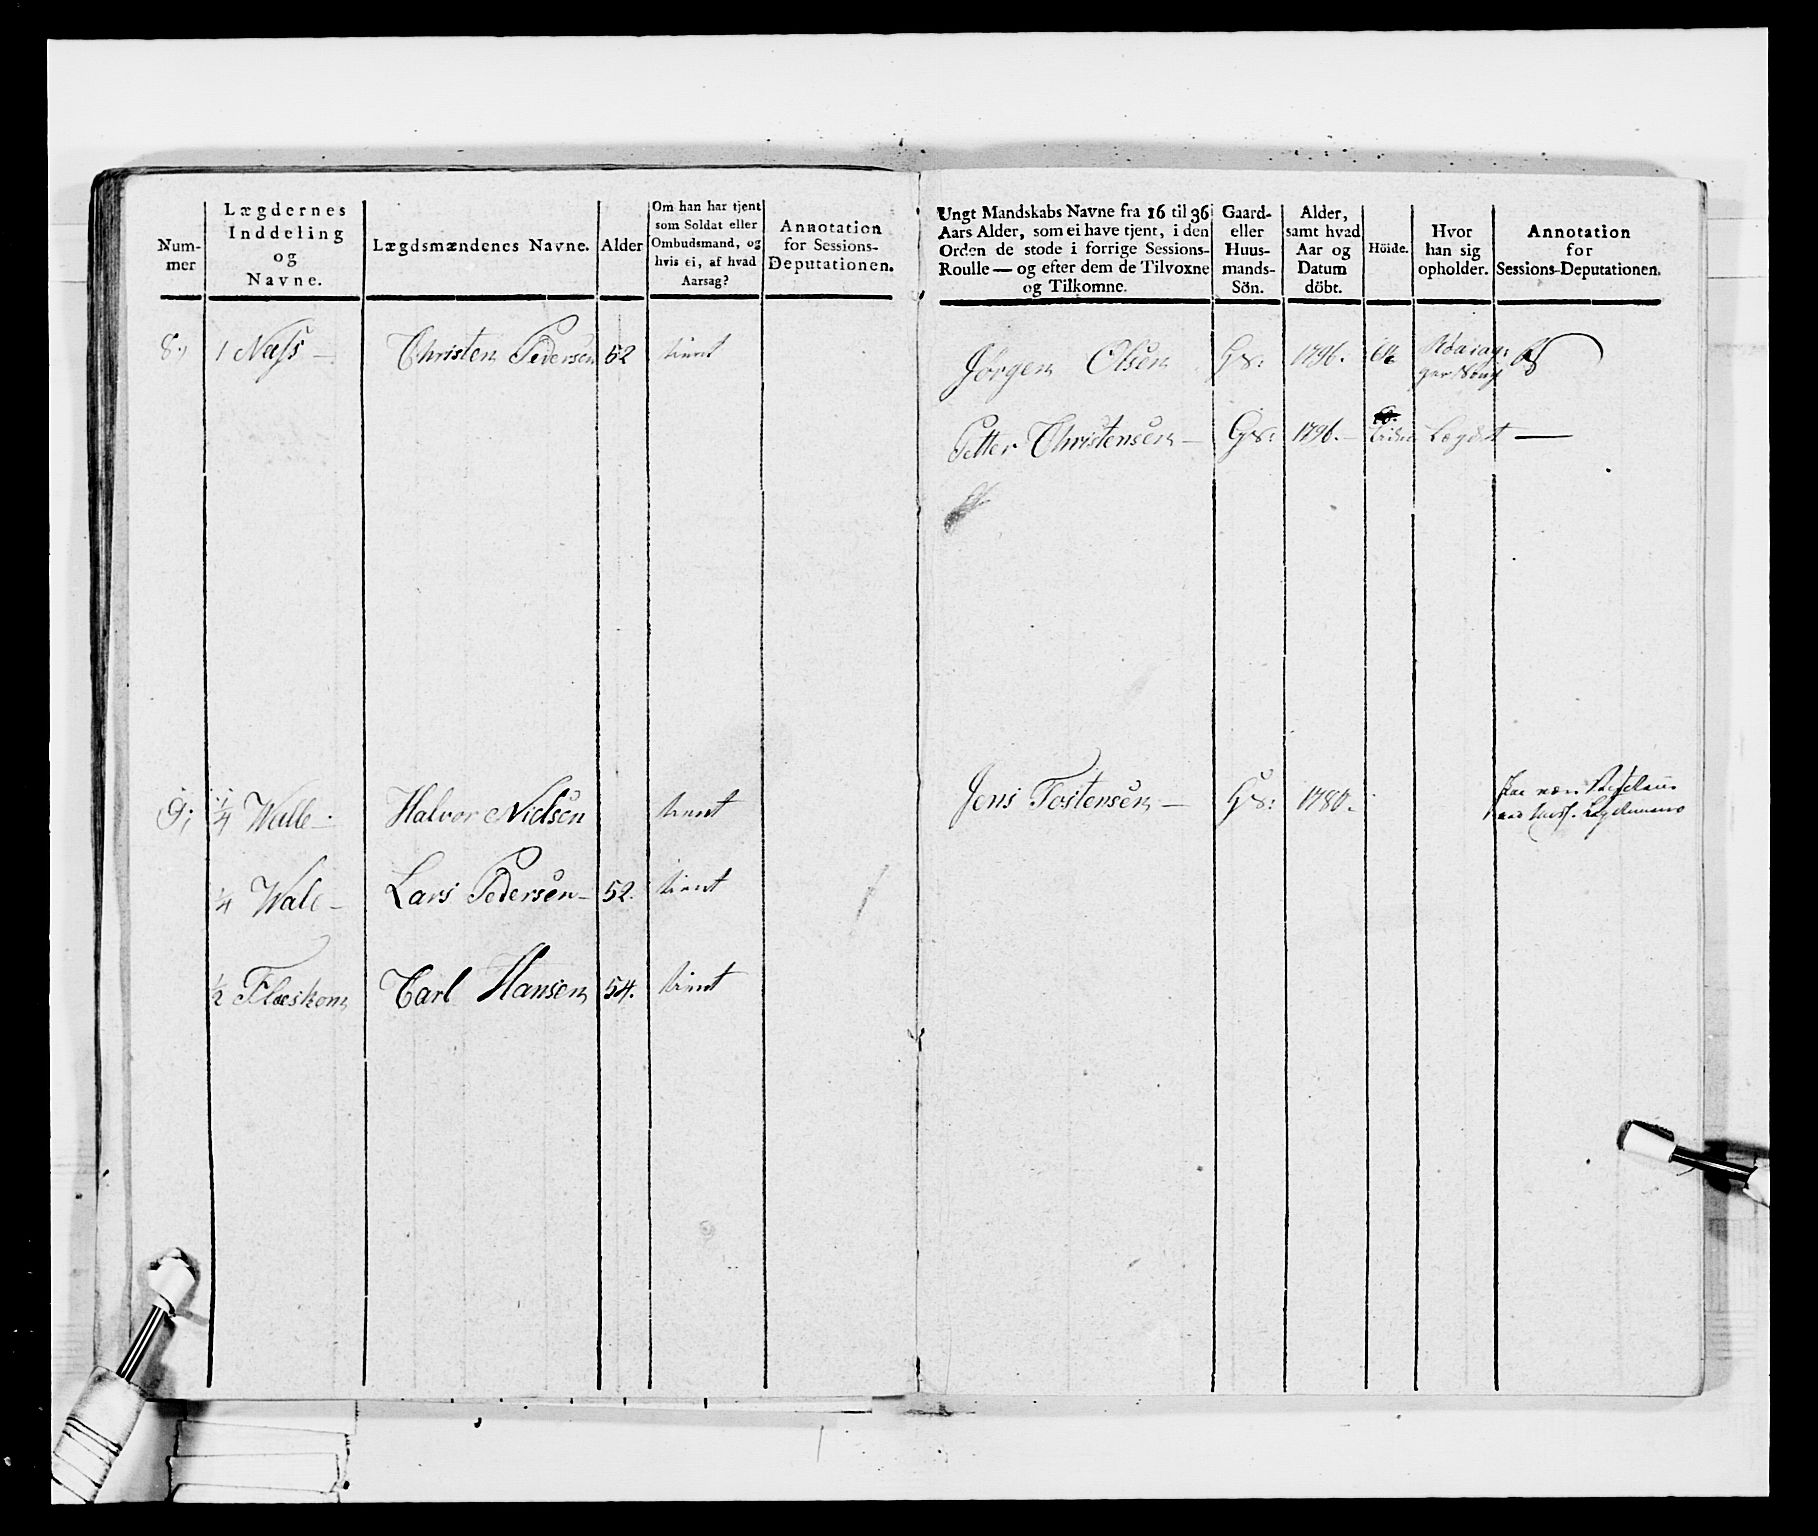 Num-
mer
Lægdernes
Inddeling
og
Navne.
Lægdsmændenes Navne.
Alder
Om han har tjent
som Soldat eller
Ombudsmand, og
hvis ei, af hvad
Aarsag?
Annotation
for Sessions-
Deputationen.
Ungt Mandskabs Navne fra 16 til 36
Aars Alder, som ei have tjent, i den
Orden de stode i forrige Sessions-
Roulle — og efter dem de Tilvoxne
og Tilkomne.
Gaard-
eller
Huus-
mands-
Sön.
Alder,
samt hvad
Aar og
Datum
döbt.
Höide.
Hvor
han sig
opholder.
Annotation
for
Sessions-Deputationen.
8; 1 Næss — Christen Pedersen 52 tient
Jørgen Olsen GS: 1796.
Petter Christensen — GS: 1796. — Lægdet —
9; 1/4 Walle — Halvor Nielsen tient
Jens Tostensen — GS: 1780.
1/4 Wale — Lars Pedersen — 52. tient
1/2 Flæskom Carl Hansen 54. tient